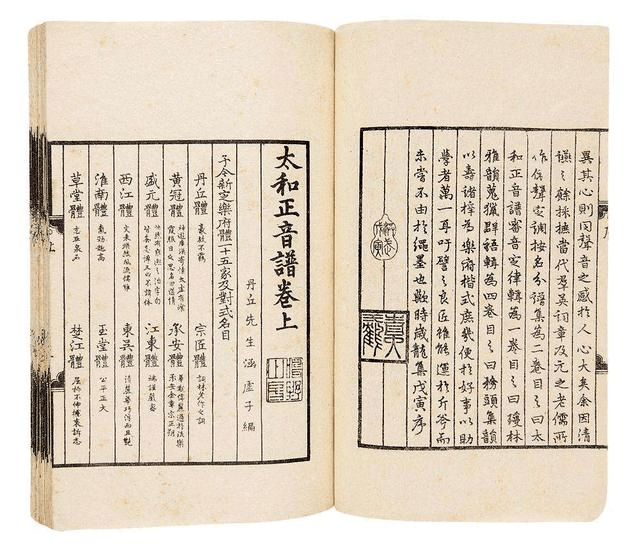 異其心則同聲音之感於人心大矣余因清
讌之餘採摭當代群英詞章及元之老儒所
作依聲定調按名分譜集為二卷目之曰太
和正音譜審音定律輯為一卷目之曰瓊林
雅韻蒐獵群語輯為四卷目之曰務頭集韻
以壽諸梓為樂府楷式庶幾便於好事以助
學者萬一耳吁譬之良匠雖能運於斤斧而
未嘗不由於繩墨也歟時歲龍集戊寅序
洪武戊寅
太和正音譜卷上
丹丘先生涵虛子編
予今新定樂府體一十五家及對式名目
丹丘體 豪放不羈 宗匠體 詞林老作之詞
黃冠體 神遊廣漠寄情太虛有餐霞服日之思名曰道情 承安體 華觀偉麗過於泆樂承安金章宗正朔
盛元體 快然有雍熙之治字句皆無忌憚又曰不諱體 江東體 端謹嚴密
西江體 文采煥然風流儒雅 東吳體 清麗華巧浮而且艷
淮南體 氣勁趣高 玉堂體 公平正大
草堂體 志在泉石 楚江體 屈抑不伸攄衷訴志